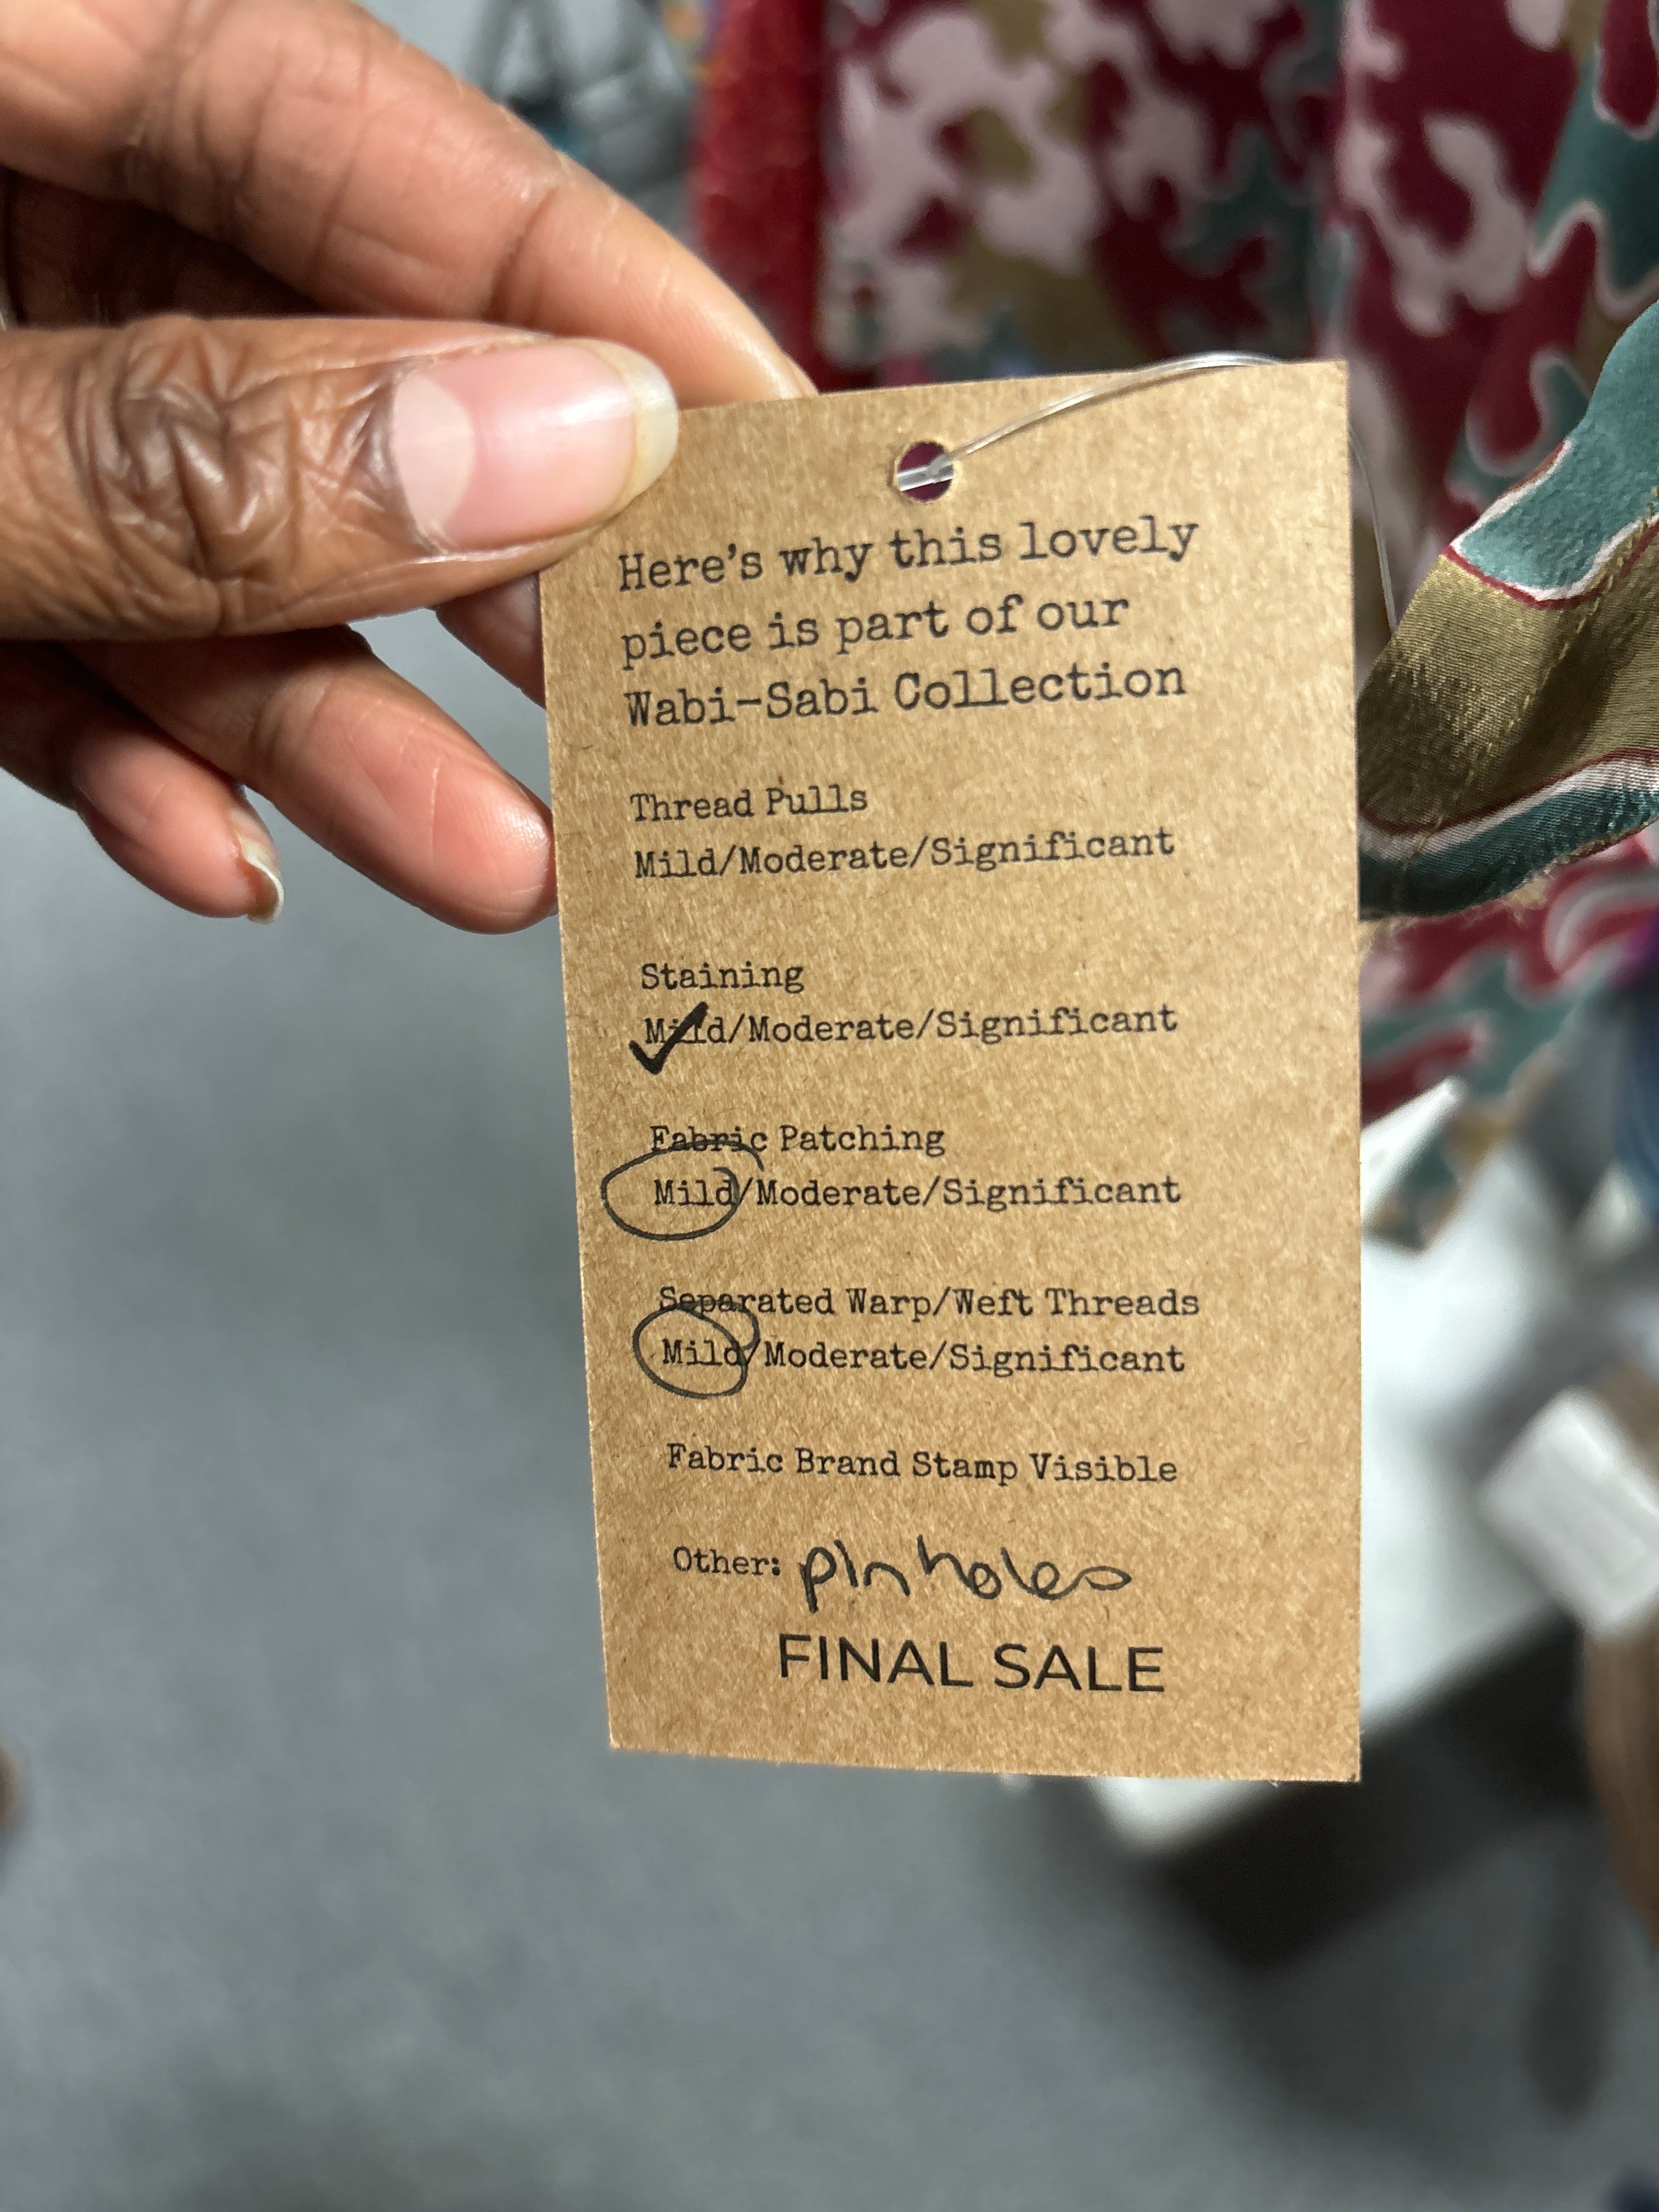 Here's why this lovely
piece is part of our
Wabi-Sabi Collection
Thread Pulls
Mild/Moderate/Significant
Staining
Mild/Moderate/Significant
Fabric Patching
Mild/Moderate/Significant
Separated Warp/Weft Threads
Mild/Moderate/Significant
Fabric Brand Stamp Visible
Other: pinholes
FINAL SALE